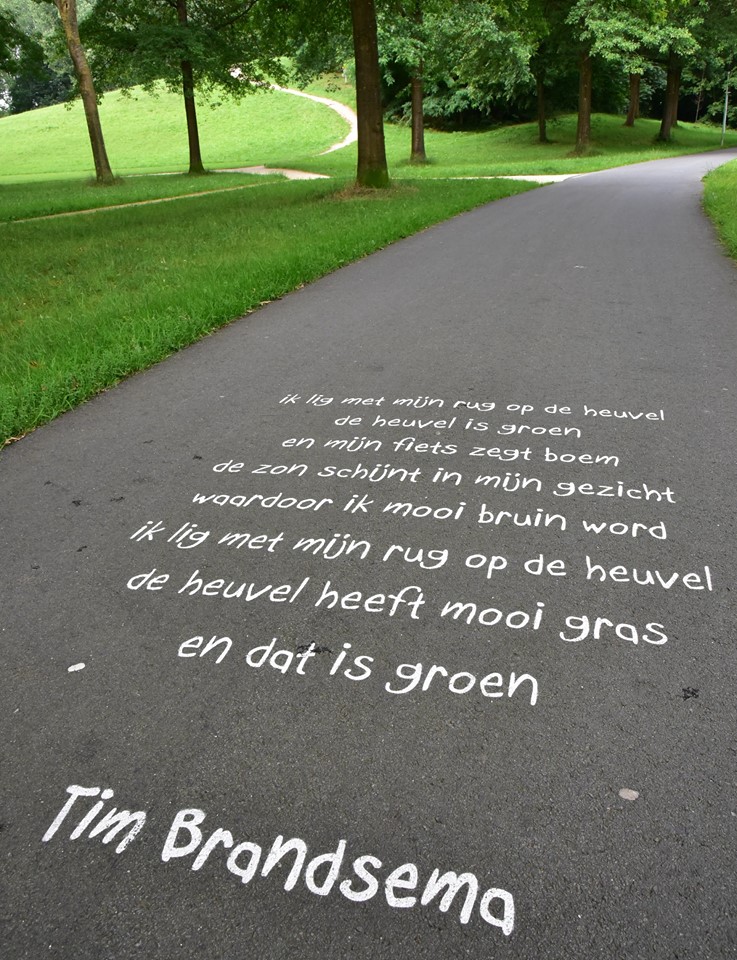 ik lig met mijn rug op de heuvel
de heuvel is groen
en mijn fiets zegt boem
de zon schijnt in mijn gezicht
waardoor ik mooi bruin word
ik lig met mijn rug op de heuvel
de heuvel heeft mooi gras
en dat is groen
Tim Brandsema